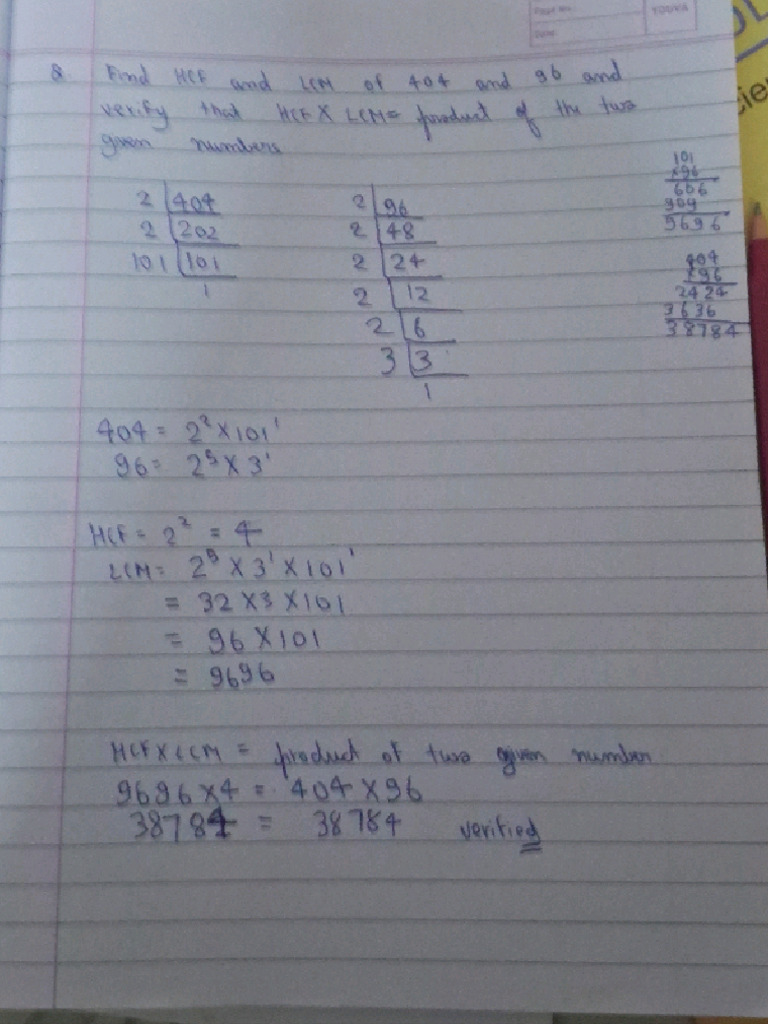 Page No.
Date
YOUVA
Q. Find HCF and LCM of 404 and 96 and
verify that HCF X LCM = product of the two
given numbers
2 404
2 202
101 101
1
2 96
2 48
2 24
2 12
2 6
3 3
1
101
x96
606
909
9696
404
x96
2424
3636
38784
404 = 2² X 101¹
96 = 2⁵ X 3¹
HCF = 2² = 4
LCM = 2⁵ X 3¹ X 101¹
= 32 X 3 X 101
= 96 X 101
= 9696
HCF X LCM = product of two given number
9696 X 4 = 404 X 96
38784 = 38784 verified